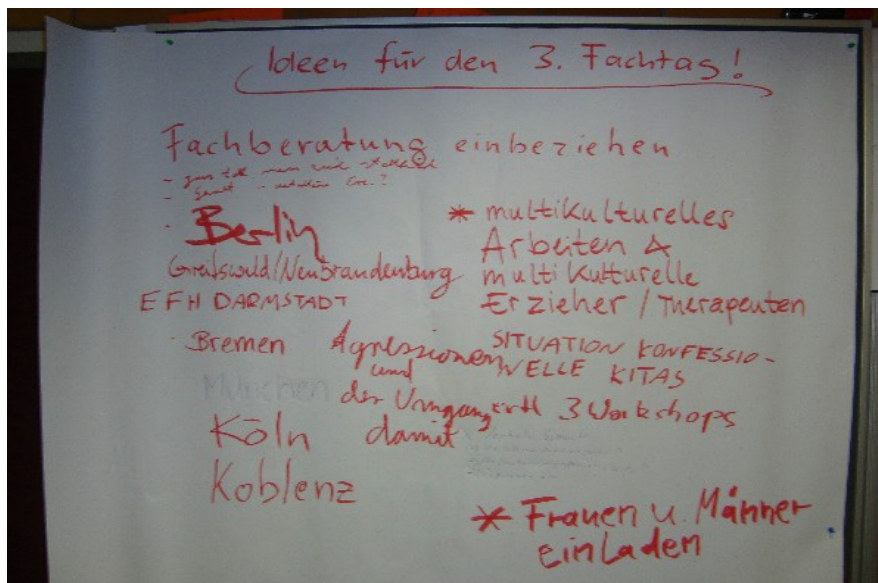 Ideen für den 3. Fachtag!
Fachberatung einbeziehen
Berlin
Greifswald/Neubrandenburg
EFH DARMSTADT
Bremen
München
Köln
Koblenz
* multikulturelles
Arbeiten &
multikulturelle
Erzieher / Therapeuten
Agressionen
und
der Umgang
damit
SITUATION KONFESSIO-
NELLE KITAS
evtl 3 Workshops
* Frauen u. Männer
einladen